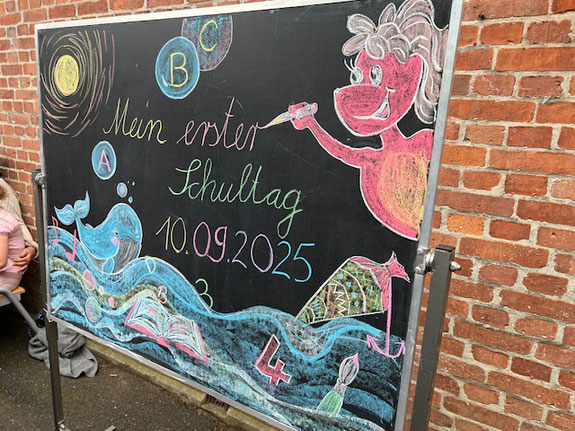 C
B
A
Mein erster
Schultag
10.09.2025
B
3
4